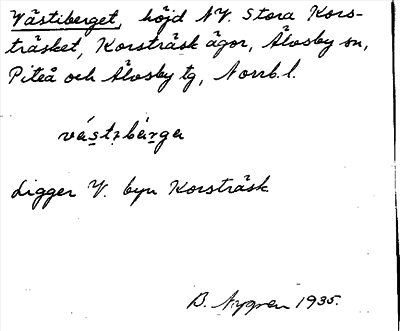 Västiberget, höjd NV. Stora Kors-
träsket, Korsträsk ägor, Älvsby sn,
Piteå och Älvsby tg, Norrb. l.
Ligger V. byn Korsträsk
B. Nygren 1935.